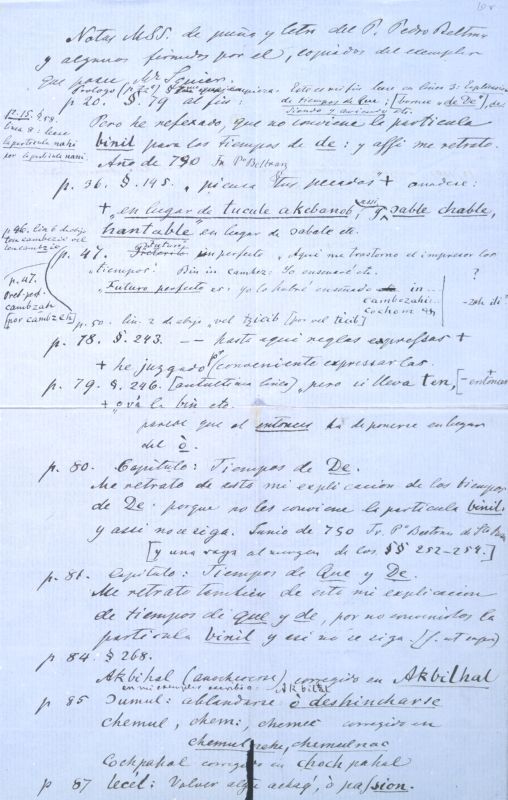 Notas MSS. de puño y letra del P. Pedro Beltran
y algunas firmadas por el, copiadas del exemplar
que posee Mr. Squier.
p 20. § 79 al fin:
de tiempos de Que; [borra "de De"], de
p. 15. § 59.
linea 9: lease
la particula nahi
por la particula nani.
Pero he reflexado, que no conviene la particula
binil para los tiempos de de: y assi me retrato.
Año de 750 Fr. Pº Beltran
p. 36. § 145. "picusa tus pecados" + anadese:
+ "en lugar de tucule akebanob, assi, y sable chable,
hantable" en lugar de sabale etc.
p. 46. lin. 6 de abajo
p. 47. futuro imperfecto "Aqui me trastorno el impressor los
tiempos: Bin in cambez: Yo enseñaré etc. ?
p. 47.
Pret. perf.
cambezah
[por cambzah]
"Futuro perfecto es: yo lo habré enseñado in...
cambezahi...
cochom
p. 50. lin. 2 de abajo "vel tzicib [por vel ticib]
p. 78. § 243. -- hasta aqui reglas expressas +
+ he juzgado pr conveniente expressarlas.
p. 79. § 246. [antultima linea] "pero si lleva ten, [- entonces
+ "ová la bin etc.
parece que el entonces ha de ponerse en lugar
del ò.
p. 80. Capitulo: Tiempos de De.
Me retrato de esta mi explicacion de los tiempos
de De: porque no les conviene la particula binil.
y assi no se siga. Junio de 750 Fr. Pº Beltran de Sta Rosa
[y una raya al margen de los §§ 252-259.]
p. 81. Capitulo: Tiempos de Que y De
Me retrato tambien de esta mi explicacion
de tiempos de que y de, por no convinirles la
particula binil y asi no se siga. [s. ut supra]
p 84. § 268.
Akbihal (anochecerse) corregido en Akbilhal
en mi exemplar escribio: Akbilhal
p 85 Jumul: ablandarse ò deshincharse
chemul, chem: chemec corregido en
chemulnehe, chemulnac
Cochpahal corregido en choch pahal
p 87 lecél: Volver algn achaq, ò passion.